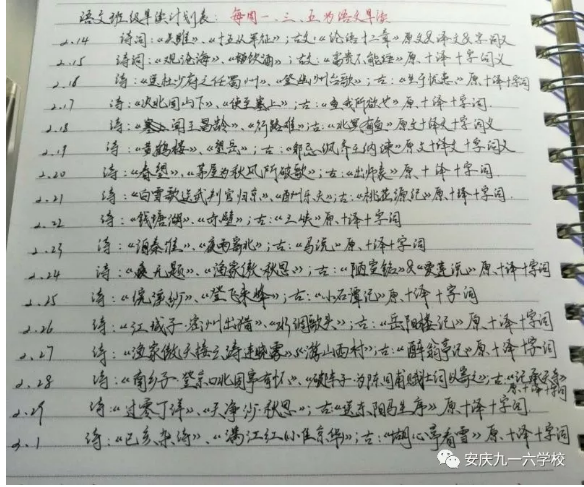 语文班级早读计划表：每周一、三、五为语文早读
2.14 诗词：《关雎》、《十五从军征》；古文：《论语十二章》原文&译文&字词义
2.15 诗词：《观沧海》、《饮酒》；古文：《富贵不能淫》原、十译十字词义
2.16 诗：《送杜少府之任蜀州》、《登幽州台歌》；古：《生于忧患》原、十译十字词
2.17 诗：《次北固山下》、《使至塞上》；古：《鱼我所欲也》原、十译十字词.
2.18 诗：闻王昌龄》、《行路难》；古：《北冥有鱼》原文十译文十字词义
2.19 诗：《黄鹤楼》、《望岳》；古：《邹忌讽齐王纳谏》原文十译文十字词
2.20 诗：《春望》、《茅屋为秋风所破歌》；古：《出师表》原、十译十字词
2.21 诗：《白雪歌送武判官归京》、《酬乐天》；古：《桃花源记》原、十译十字词.
2.22 诗：《钱塘湖》、《赤壁》；古：《三峡》原、十译十字词
2.23 诗：《泊秦淮》、《夜雨寄北》；古：《马说》原、十译十字词
2.24 诗：《无题》、《渔家傲·秋思》；古：《陋室铭》&《爱莲说》原、十译十字词
2.25 诗：《浣溪纱》、《登飞来峰》；古：《小石潭记》原、十译十字词
2.26 诗：《江城子·密州出猎》、《水调歌头》；古：《岳阳楼记》原、十译十字词
2.27 诗：《渔家傲·天接云涛连晓雾》、《游山西村》；古：《醉翁亭记》原、十译十字词
2.28 诗：《南乡子·登京口北固亭有怀》、《破阵子·为陈同甫赋壮词以寄之》；古：《记承天寺》原、十译十字词
2.29 诗：《过零丁洋》、《天净沙·秋思》；古：《送东阳马生序》原、十译十字词
2.1 诗：《己亥杂诗》、《满江红·小住京华》；古：《湖心亭看雪》原、十译十字词
安庆九一六学校